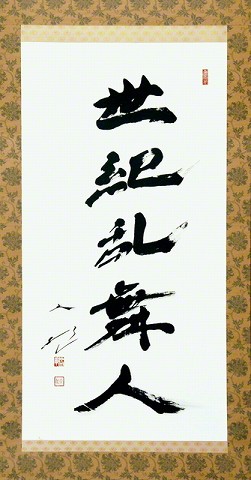 世紀乱舞人